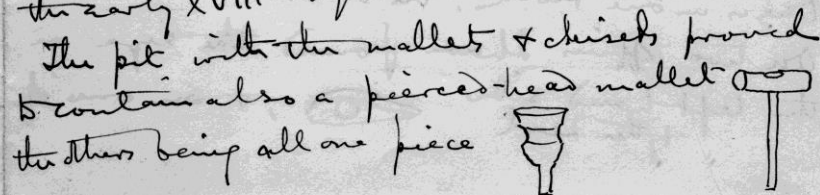 the early XVIII
The pit with the mallets & chisels proved
to contain also a pierced-head mallet
the others being all one piece